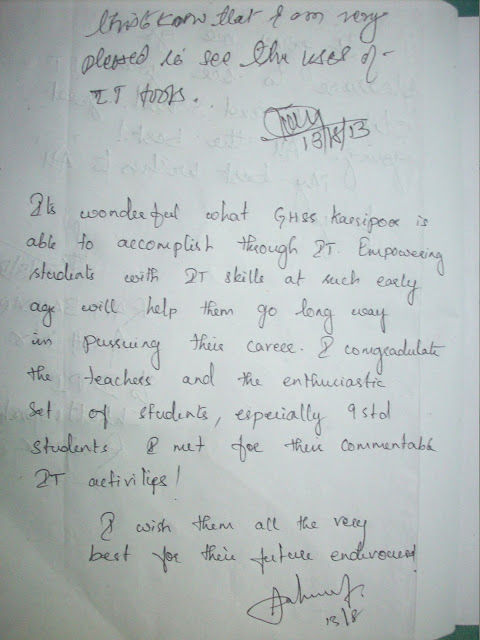 know that I am very
pleased to see the uses of
IT tools.
13/8/13
Its wonderful what GHSS Karsipoor is
able to accomplish through IT. Empowering
students with IT skills at such early
age will help them go long way
in pursuing their career. I congradulate
the teachers and the enthuciastic
set of students, especially 9 std
students I met for their commentable
IT activities!
I wish them all the very
best for their future endevoures!
13/8